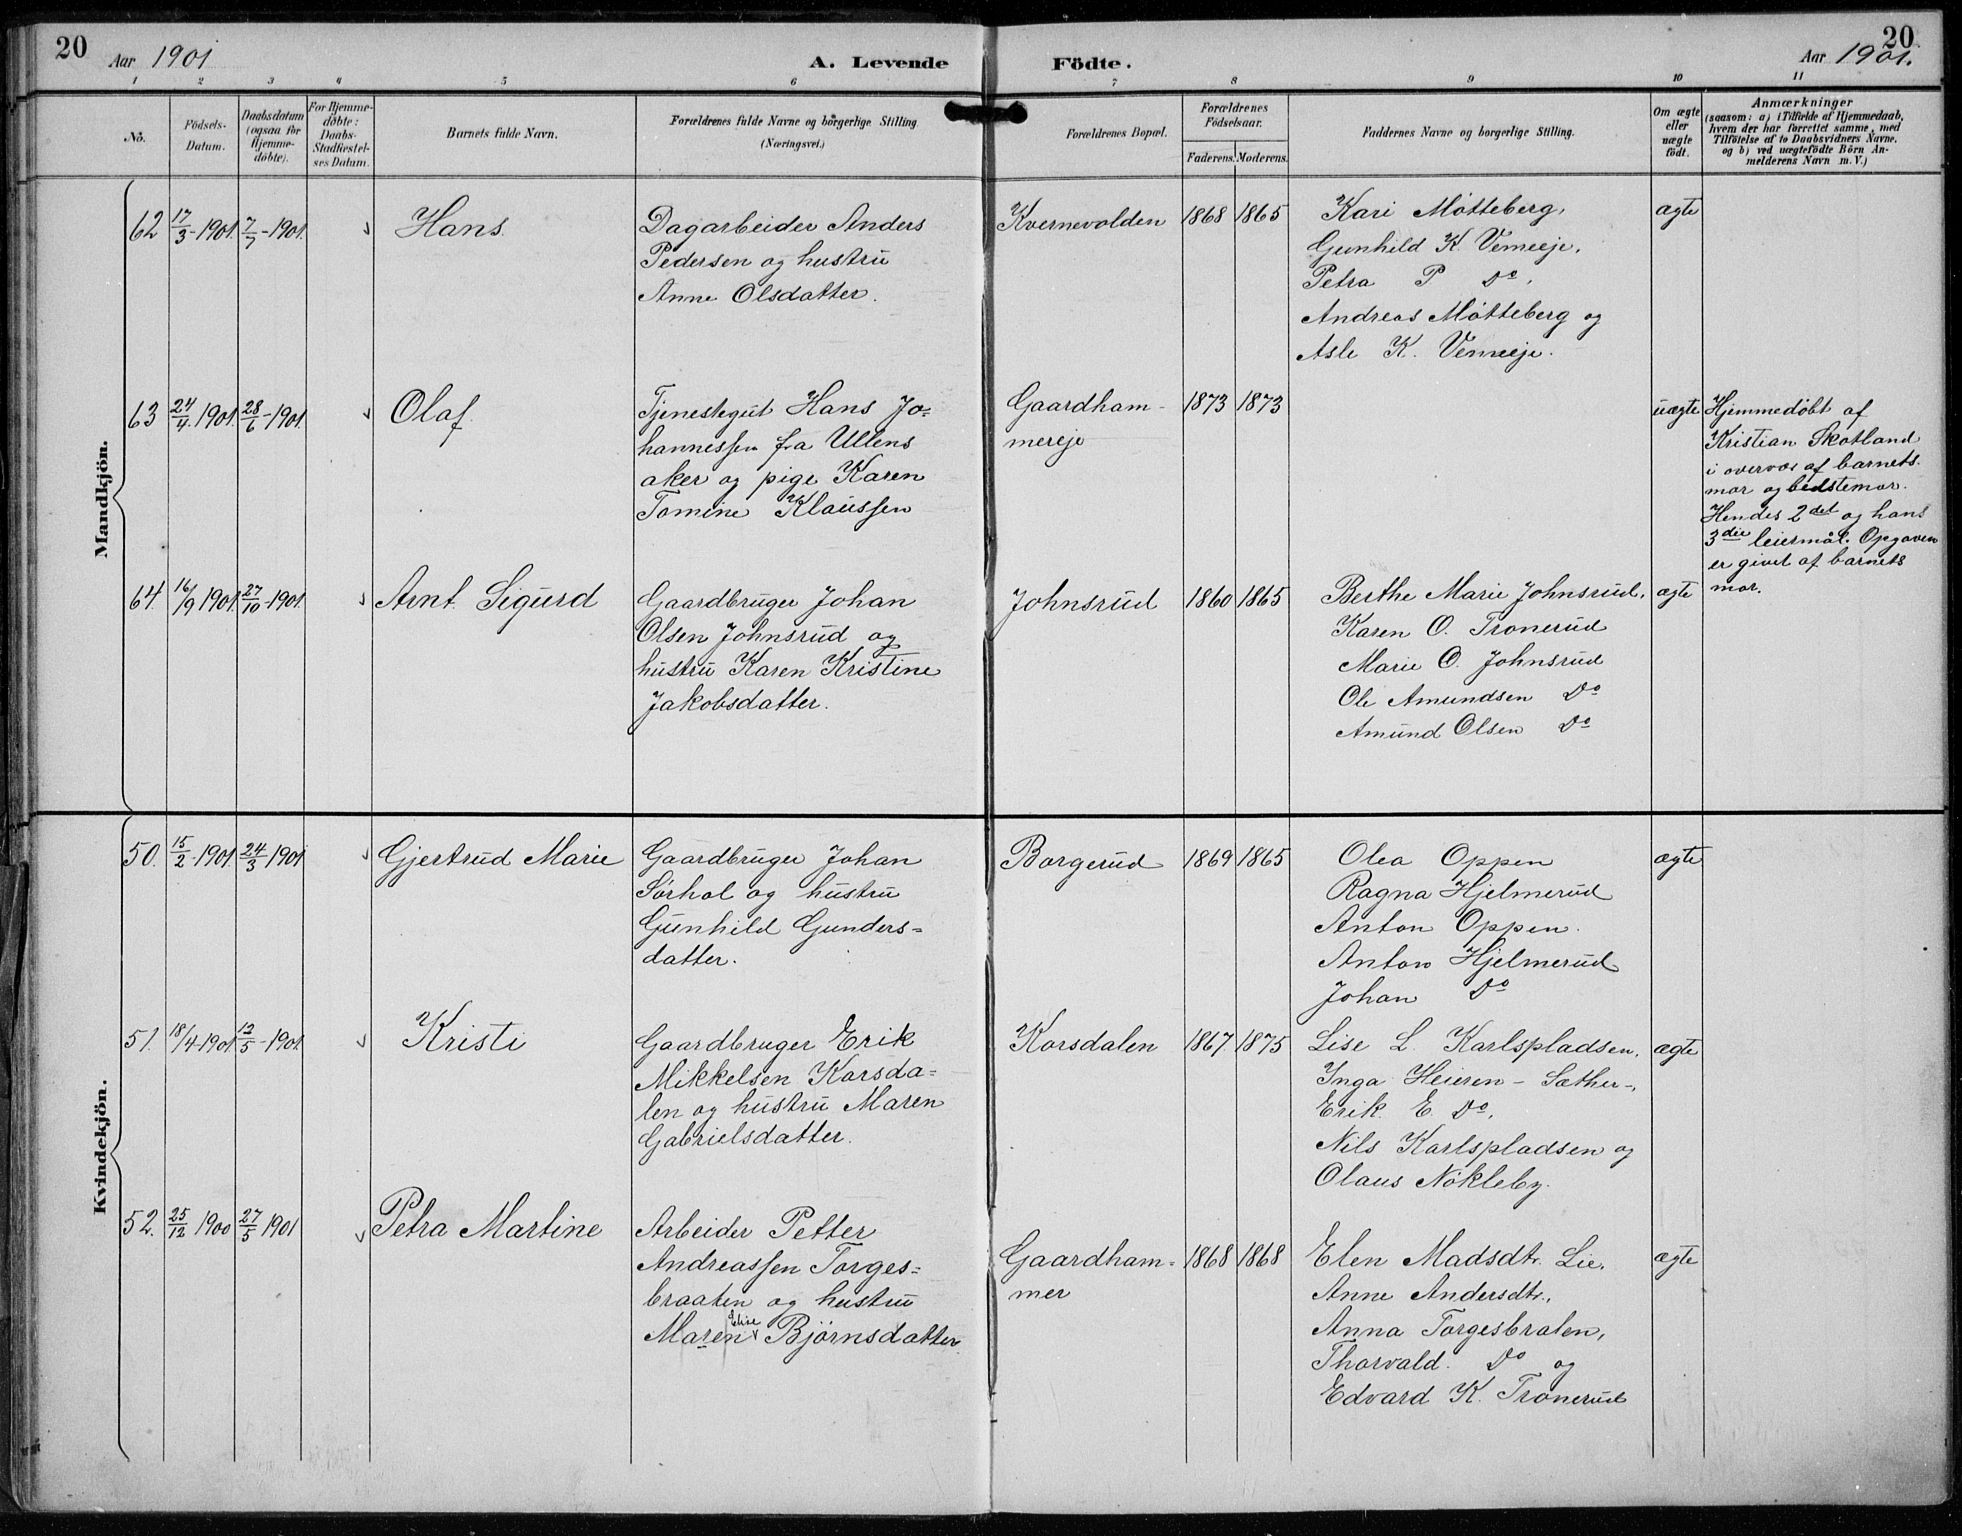 20
Aar 1901
A. Levende
Födte.
Aar 1901.
20
1 2 3 4 5 6 7 8 9 10 11
No.
Födsels-Datum.
Daabsdatum (ogsaa for Hjemmedöbte).
For Hjemmedöbte: Daabs-Stadfæstelses Datum.
Barnets fulde Navn.
Forældrenes fulde Navne og borgerlige Stilling (Næringsvei.)
Forældrenes Bopæl.
Forældrenes Födselsaar.
Faderens. Moderens.
Faddernes Navne og borgerlige Stilling.
Om ægte eller uægte födt.
Anmærkninger
(saasom: a) i Tilfælde af Hjemmedaab,
hvem der har forrettet samme, med
Tilföielse af to Daabsvidners Navne,
og b) ved uægtefödte Börn An-
melderens Navn m. V.)
Mandkjön.
62 17/3-1901. 7/7-1901. Hans.
Dagarbeider Anders
Pedersen og hustru
Anne Olsdatter.
Kvernevolden 1868 1865
Kari Møtteberg,
Gunhild K. Vemeeje,
Petra P Do,
Andreas Møtteberg og
Asle K. Vemeeje.
ægte
63 24/4 1901. 28/6-1901. Olaf.
Tjenestegut Hans Jo=
hannessen fra Ullens
aker og pige Karen
Tomine Klaussen
Gaardham-
mereje
1873 1873
uægte
Hjemmedøbt af
Kristian Skotland
i overvær af barnets
mor og bedstemor.
Hendes 2det og hans
3die leiermål. Opgaven
er givet af barnets
mor.
64. 16/9 1901. 27/10-1901. Arnt Sigurd
Gaardbruger Johan
Olsen Johnsrud og
hustru Karen Kristine
Jakobsdatter.
Johnsrud 1860 1865
Berthe Marie Johnsrud,
Karen O. Tronerud
Marie O. Johnsrud
Ole Amundsen Do
Amund Olsen Do
ægte
Kvindekjön.
50. 15/2-1901 24/3 1901 Gjertrud Marie
Gaardbruger Johan
Sørhol og hustru
Gunhild Gunders=
datter.
Borgerud 1869 1865
Olea Oppen
Ragna Hjelmerud
Anton Oppen.
Anton Hjelmerud
Johan Do
ægte
51. 18/4-1901 12/5-1901. Kristi
Gaardbruger Erik
Mikkelsen Korsda=
len og hustru Maren
Gabrielsdatter.
Korsdalen 1867 1875
Lise L. Karlspladsen,
Inga Heieren - Sæther-,
Erik E. Do,
Nils Karlspladsen og
Olaus Nøkleby.
ægte
52. 25/12 1900 27/5 1901 Petra Martine
Arbeider Petter
Andreassen Torges=
braaten og hustru
Maren Elise Bjørnsdatter
Gaardham=
mer
1868 1868
Elen Madsdtr. Lie,
Anne Andersdtr.,
Anna Torgesbraten,
Thorvald. Do og
Edvard K. Tronerud
ægte